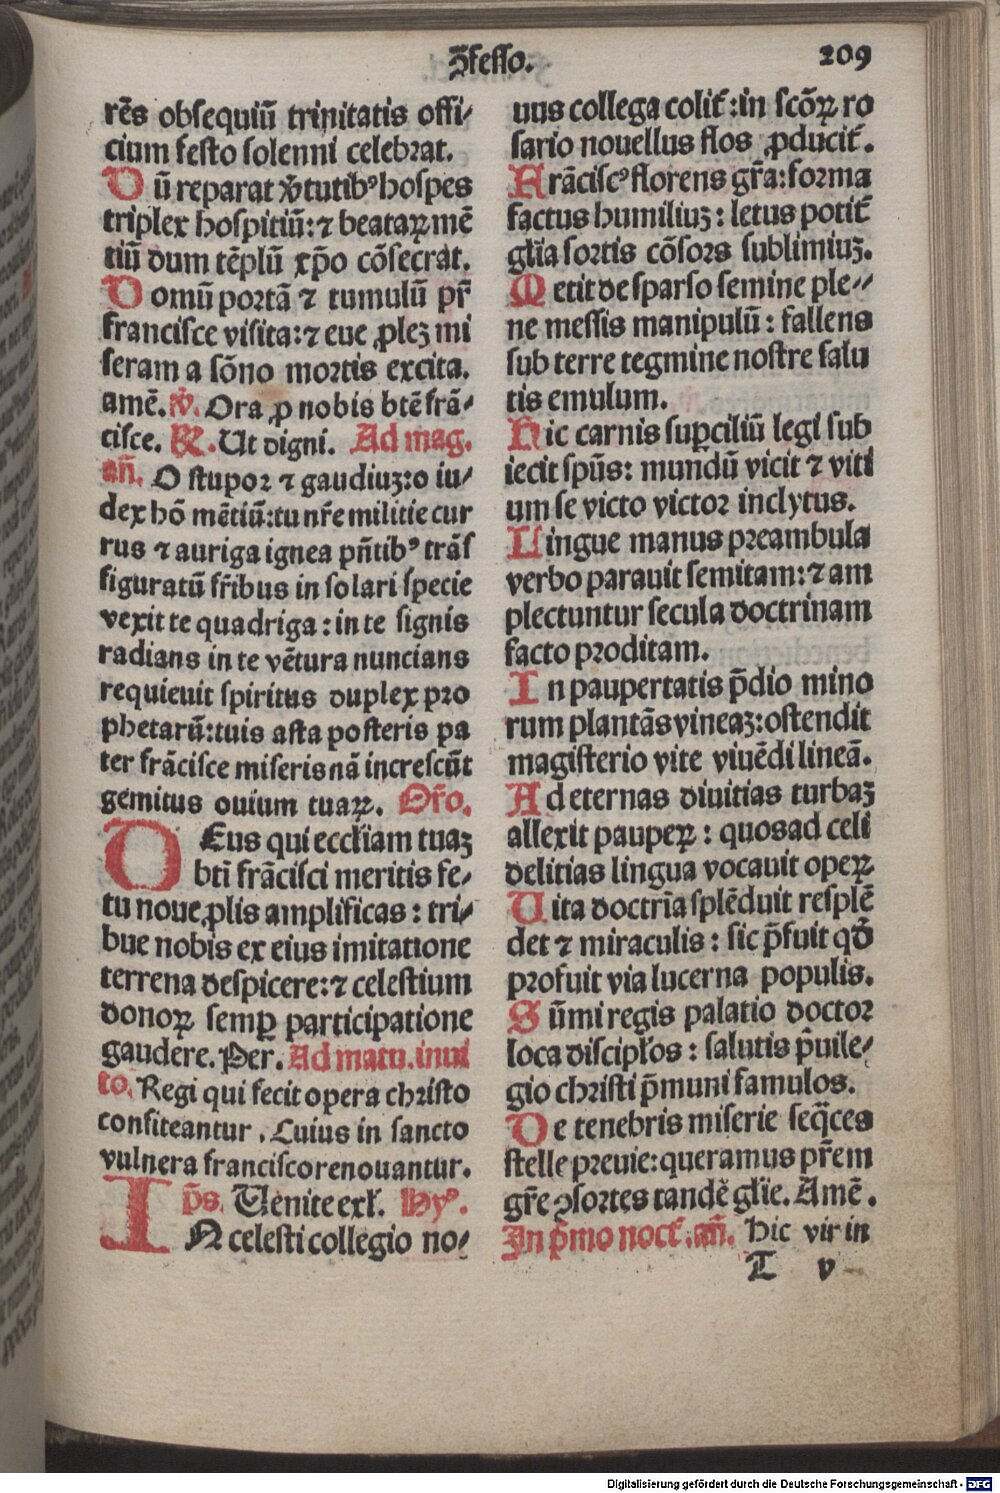 ꝯfesso.
209
rēs obsequiū trinitatis offi⸗
cium festo solenni celebrat.
Dū reparat v̓tutibꝰ hospes
triplex hospitiū: ⁊ beataꝝ mē
tiū dum tēplū xp̄o cōsecrat.
Domū portā ⁊ tumulū pr̄
francisce visita: ⁊ eue ꝓleꝫ mi
seram a sōno mortis excita.
amē. V̓. Ora ꝓ nobis btē frā⸗
cisce. R̓. Ut digni. Ad mag.
an̄. O stupor ⁊ gaudiuꝫ: o iu⸗
dex hō mētiū: tu nr̄e militie cur
rus ⁊ auriga ignea pn̄tibꝰ trāſ
figuratū fr̄ibus in solari specie
vexit te quadriga: in te signis
radians in te vētura nuncians
requieuit spiritus duplex pro
phetarū: tuis asta posteris pa
ter frācisce miseris nā increscūt
gemitus ouium tuaꝝ. Or̄o.
DEus qui eccl̄iam tuaꝫ
bti̅ frācisci meritis fe⸗
tu noue ꝓlis amplificas: tri⸗
bue nobis ex eius imitatione
terrena despicere: ⁊ celestium
donoꝝ semꝑ participatione
gaudere. Per. Ad matu. inui
to. Regi qui fecit opera christo
confiteantur. Cuius in sancto
vulnera francisco renouantur.
p̄s. Venite exl̄. Hyꝰ.
IN celesti collegio no⸗
uus collega colit᷑: in scōꝝ ro
sario nouellus flos ꝓducit᷑.
Frāciscꝰ florens gr̄a: forma
factus humiliuꝫ: letus potit᷑
gl̄ia sortis cōsors sublimiuꝫ.
Metit de sparso semine ple⸗
ne messis manipulū: fallens
sub terre tegmine nostre salu
tis emulum.
Hic carnis suꝑciliū legi sub
iecit sp̄us: mundū vicit ⁊ viti
um se victo victor inclytus.
Lingue manus preambula
verbo parauit semitam: ⁊ am
plectuntur secula doctrinam
facto proditam.
In paupertatis p̄dio mino
rum plantās vineaꝫ: ostendit
magisterio vite viuēdi lineā.
Ad eternas diuitias turbaꝫ
allexit pauperꝝ: quos ad celi
delitias lingua vocauit operꝝ
Uita doctri̅a splēduit resplē
det ⁊ miraculis: sic p̄fuit qd̓
profuit via lucerna populis.
Sūmi regis palatio doctor
loca discipl̄os: salutis p̄uile⸗
gio christi p̄muni famulos.
De tenebris miserie seq̄ces
stelle preuie: queramus pr̄em
gr̄e ꝯsortes tandē gl̄ie. Amē.
In p̄mo noct᷑. an̄. Hic vir in
T v
Digitalisierung gefördert durch die Deutsche Forschungsgemeinschaft - DFG